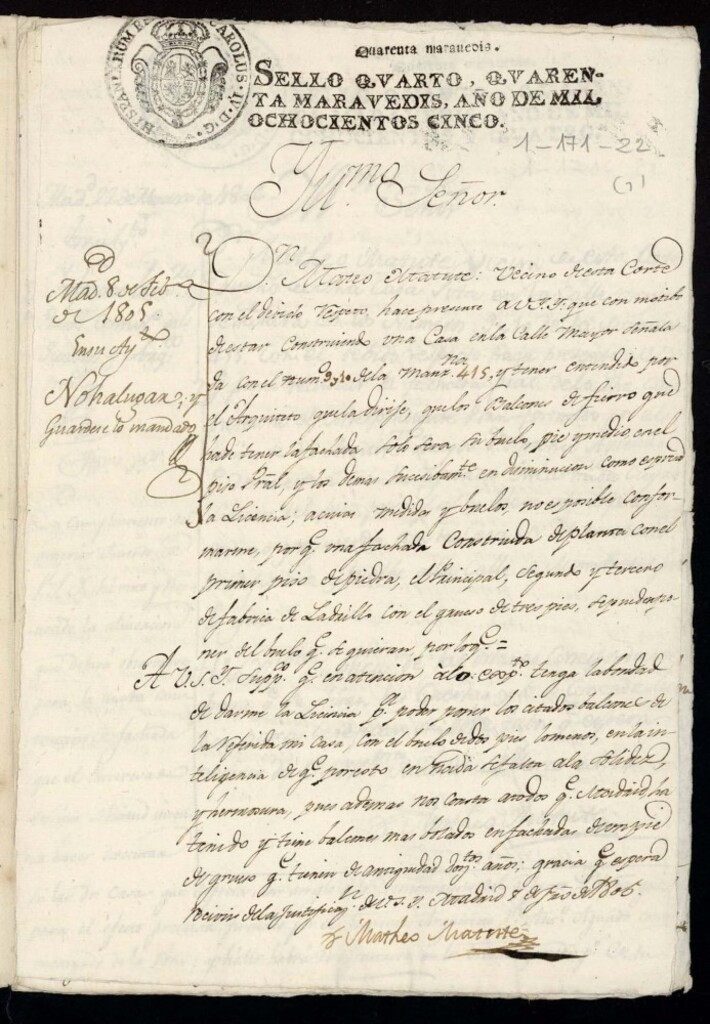 HISPANIARUM CAROLUS IV D G
Quarenta maravedis.
SELLO QVARTO, QVAREN-
TA MARAVEDIS, AÑO DE MIL
OCHOCIENTOS CINCO.
1-171-22
Yll.mo Señor.
Mad.d 8 de Feb.o
de 1805
En su Ay.to
No ha lugar, y
Guardese lo mandado
D.n Mateo Matute: Vecino de esta Corte
con el devido respeto, hace presente a V.S.Y. que con motibo
de estar Construiendo una Casa en la Calle Mayor Señala
da con el num.o 9 y 10 de la Manz.na 415, y tener entendido por
el Arquiteto que la dirije, que los Balcones de fierro que
ha de tener la fachada solo sera su buelo, pie y medio en el
piso Pral, y los demas sucesibam.te en diminucion como espresa
la Licencia; a cuias medidas y buelos, no es posible confor-
marme, por q.e una fachada Construida de planta con el
primer piso de piedra, el Principal, segundo y tercero
de fabrica de Ladrillo con el grueso de tres pies, se pueden po-
ner del buelo q.e se quieran, por lo q.e =
A V.S.Y. Supp.co q.e en atencion a lo exp.to tenga la bondad
de darme la Licencia p.a poder poner los citados balcones de
la referida mi Casa, con el buelo de dos pies lo menos, en la in-
teligencia de q.e por esto en nada se falta a la Solidez,
y hermosura, pues ademas nos consta a todos q.e Madrid ha
tenido y tiene balcones mas bolados en fachadas de un pie
de grueso q.e tienen de antiguedad años; gracia q.e espera
recivir de la Justificaz.n de V.S.Y. Madrid de de 1805.
Matheo Matute